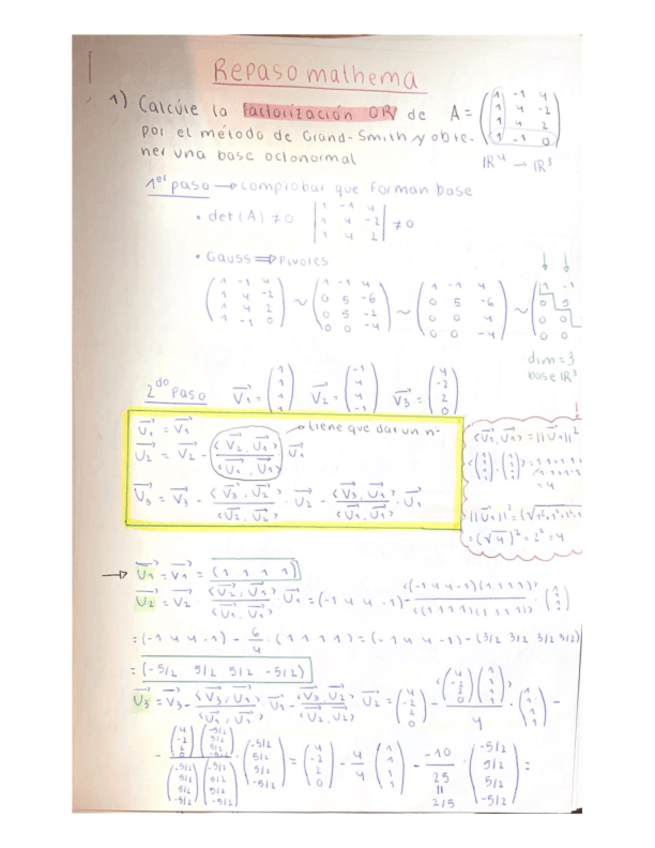 Repaso mathema
1) Calcule la factorización QR de A = (1 -1 4
1 4 -2
1 4 2
1 -1 0)
por el método de Grand-Smith y obte-
ner una base octonormal
IR⁴ → IR³
1er paso → comprobar que forman base
• det(A) ≠ 0 |1 -1 4
1 4 -2
1 4 2| ≠ 0
• Gauss ⇒ pivotes
(1 -1 4
1 4 -2
1 4 2
1 -1 0) ~ (1 -1 4
0 5 -6
0 5 -2
0 0 -4) ~ (1 -1 4
0 5 -6
0 0 4
0 0 -4) ~ (1 -1
0 5
0 0
0 0
dim = 3
base IR³
2do paso V1 = (1
1
1
1) V2 = (-1
4
4
-1) V3 = (4
-2
2
0)
U1 = V1 → tiene que dar un nº
U2 = V2 - <V2, U1> / <U1, U1> · U1
U3 = V3 - <V3, U2> / <U2, U2> · U2 - <V3, U1> / <U1, U1> · U1
<U1, U1> = ||U1||²
= 4
= (√4)² = 2² = 4
→ U1 = V1 = (1 1 1 1)
U2 = V2 - <V2, U1> / <U1, U1> · U1 = (-1 4 4 -1) - <(-1 4 4 -1)(1 1 1 1)> / <(1 1 1 1)(1 1 1 1)> · (1
1
1
1)
= (-1 4 4 -1) - 6/4 · (1 1 1 1) = (-1 4 4 -1) - (3/2 3/2 3/2 3/2)
= (-5/2 5/2 5/2 -5/2)
U3 = V3 - <V3, U1> / <U1, U1> · U1 - <V3, U2> / <U2, U2> · U2 = (4
-2
2
0) - <(4
-2
2
0)(1
1
1
1)> / 4 · (1
1
1
1) -
- (4
-2
2
0)(-5/2
5/2
5/2
-5/2) / (-5/2
5/2
5/2
-5/2)(-5/2
5/2
5/2
-5/2) · (-5/2
5/2
5/2
-5/2) = (4
-2
2
0) - 4/4 · (1
1
1
1) - -10/25 · (-5/2
5/2
5/2
-5/2) =
=
2/5